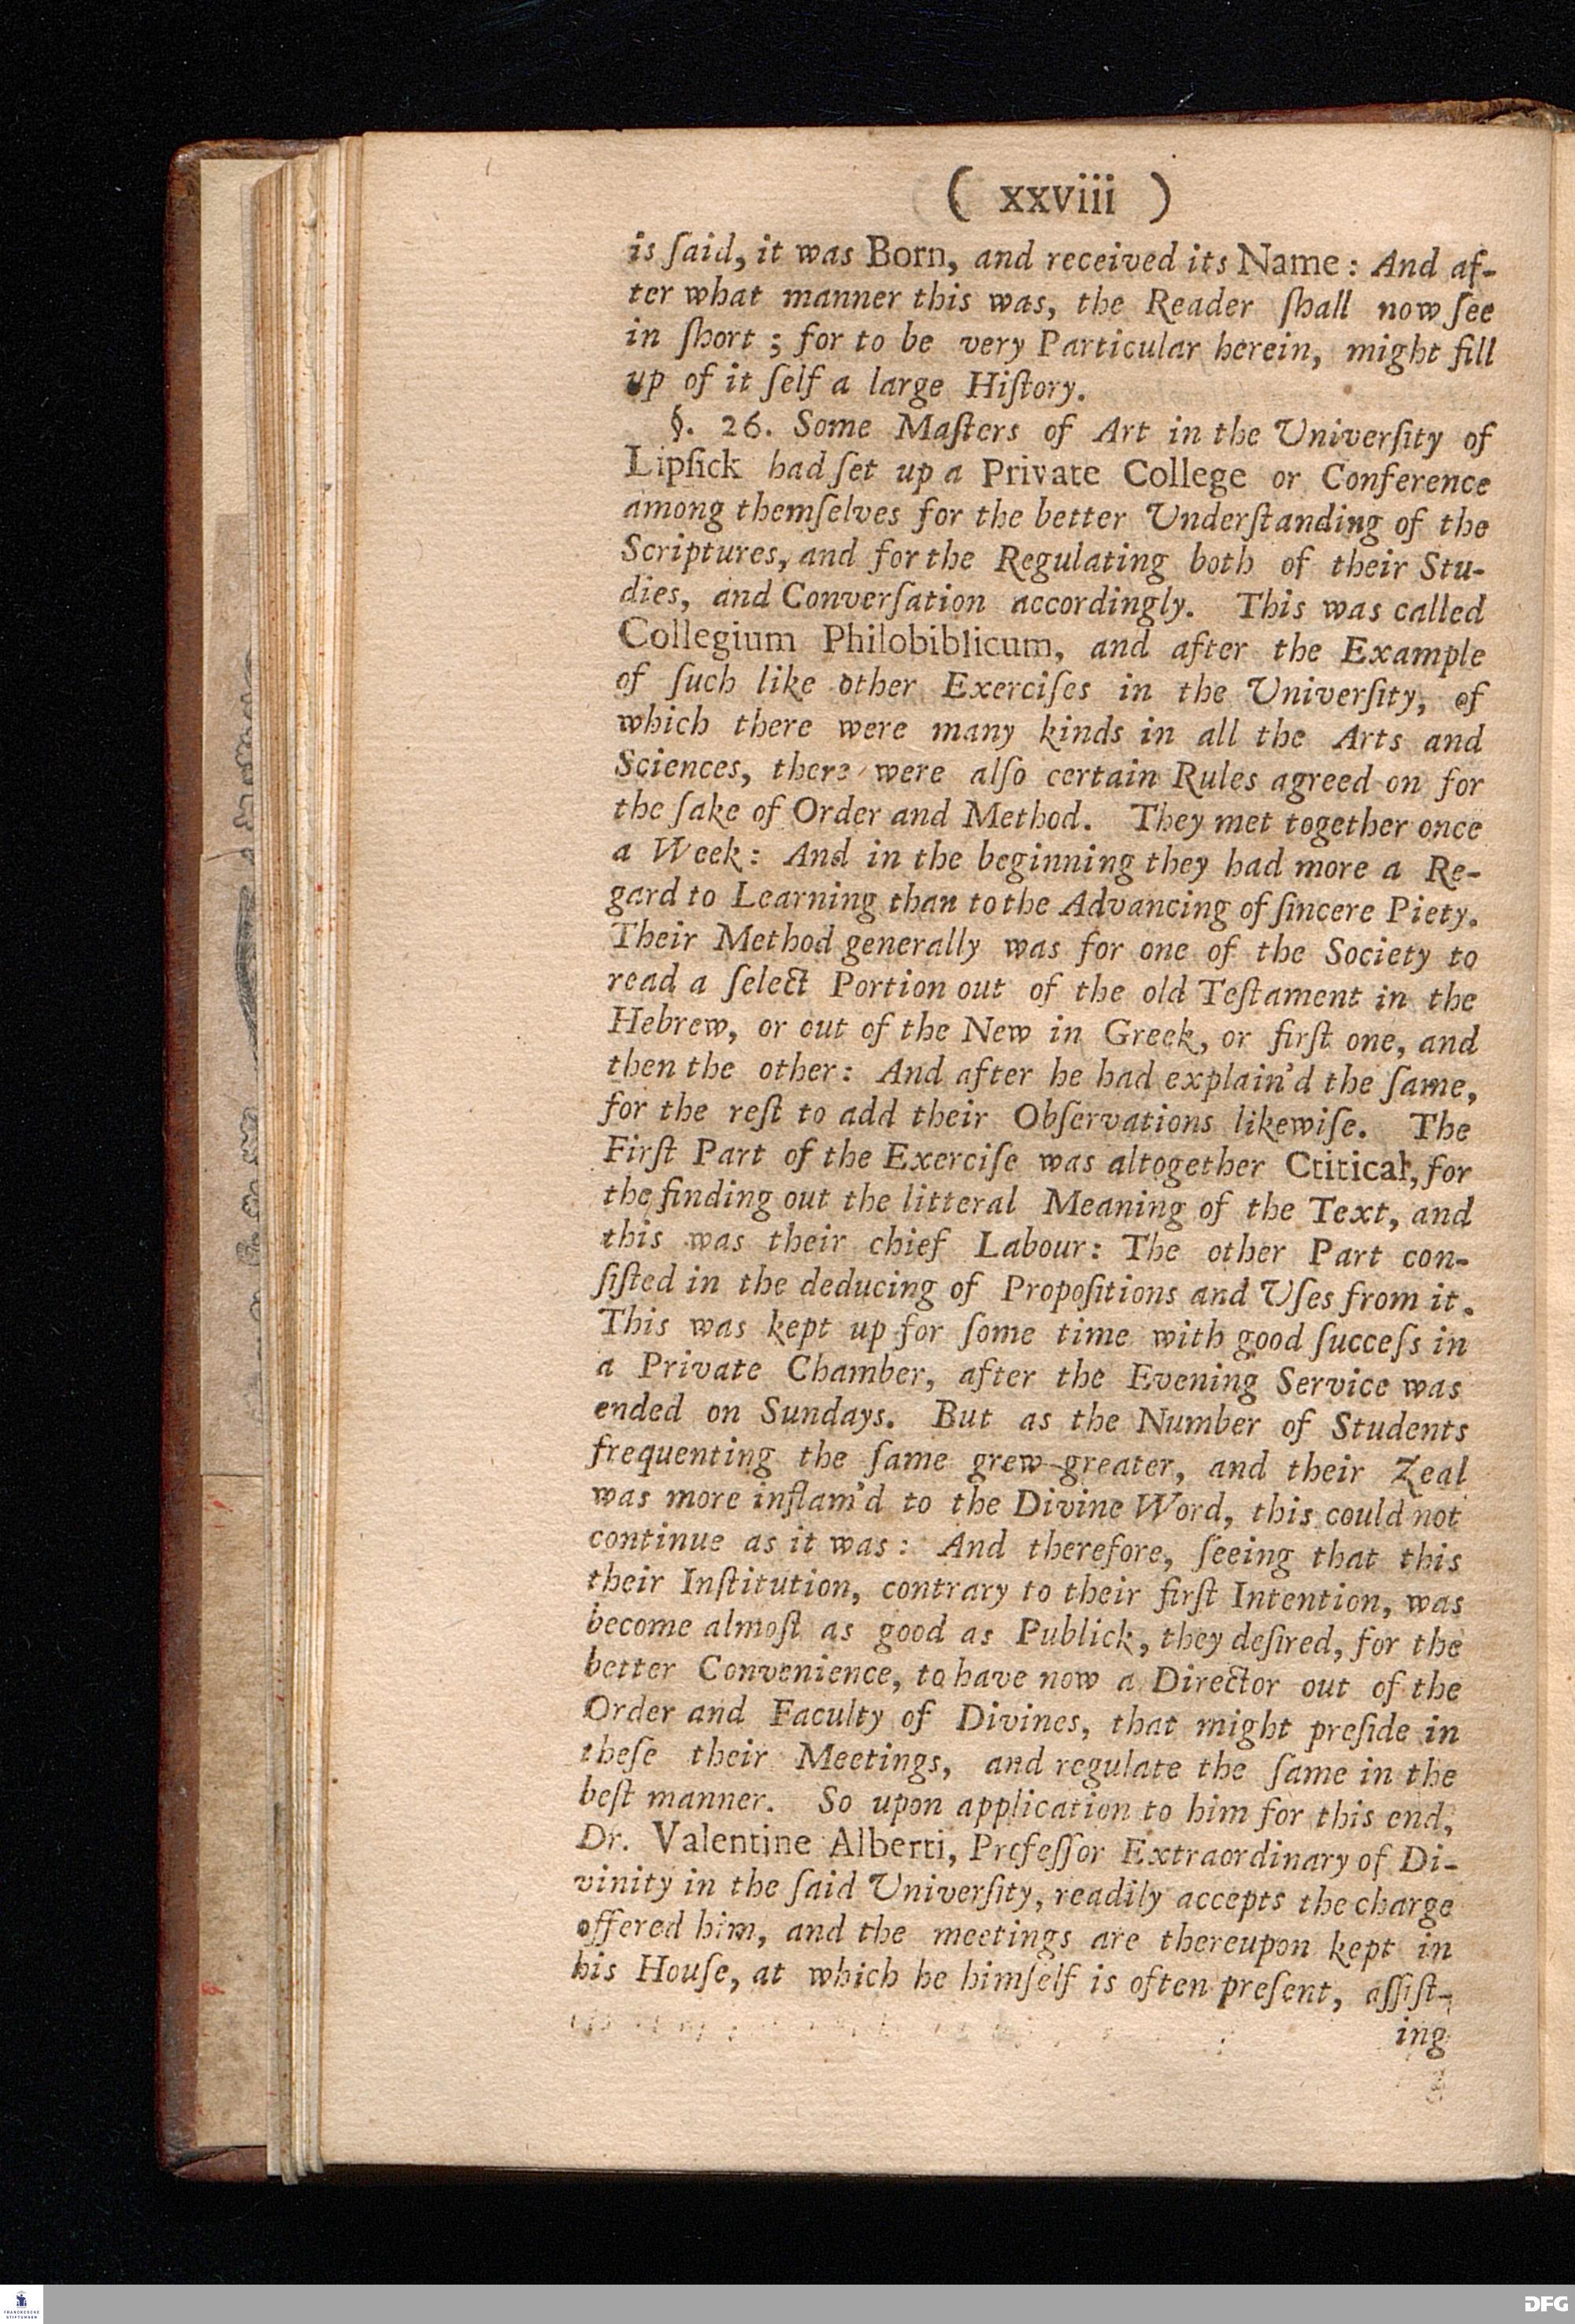 ( xxviii )
is ſaid, it was Born, and received its Name: And af-
ter what manner this was, the Reader ſhall now ſee
in ſhort; for to be very Particular herein, might fill
up of it ſelf a large Hiſtory.
§. 26. Some Maſters of Art in the Univerſity of
Lipſick had ſet up a Private College or Conference
among themſelves for the better Underſtanding of the
Scriptures, and for the Regulating both of their Stu-
dies, and Converſation accordingly. This was called
Collegium Philobiblicum, and after the Example
of ſuch like other Exerciſes in the Univerſity, of
which there were many kinds in all the Arts and
Sciences, there were alſo certain Rules agreed on for
the ſake of Order and Method. They met together once
a Week: And in the beginning they had more a Re-
gard to Learning than to the Advancing of ſincere Piety.
Their Method generally was for one of the Society to
read a ſelect Portion out of the old Teſtament in the
Hebrew, or out of the New in Greek, or firſt one, and
then the other: And after he had explain'd the ſame,
for the reſt to add their Obſervations likewiſe. The
Firſt Part of the Exerciſe was altogether Ctitical, for
the finding out the litteral Meaning of the Text, and
this was their chief Labour: The other Part con-
ſiſted in the deducing of Propoſitions and Uſes from it.
This was kept up for ſome time with good ſucceſs in
a Private Chamber, after the Evening Service was
ended on Sundays. But as the Number of Students
frequenting the ſame grew greater, and their Zeal
was more inflam'd to the Divine Word, this could not
continue as it was: And therefore, ſeeing that this
their Inſtitution, contrary to their firſt Intention, was
become almoſt as good as Publick, they deſired, for the
better Convenience, to have now a Director out of the
Order and Faculty of Divines, that might preſide in
theſe their Meetings, and regulate the ſame in the
beſt manner. So upon application to him for this end,
Dr. Valentine Alberti, Profeſſor Extraordinary of Di-
vinity in the ſaid Univerſity, readily accepts the charge
offered him, and the meetings are thereupon kept in
his Houſe, at which he himſelf is often preſent, aſſiſt-
ing
FRANCKESCHE
STIFTUNGEN
DFG